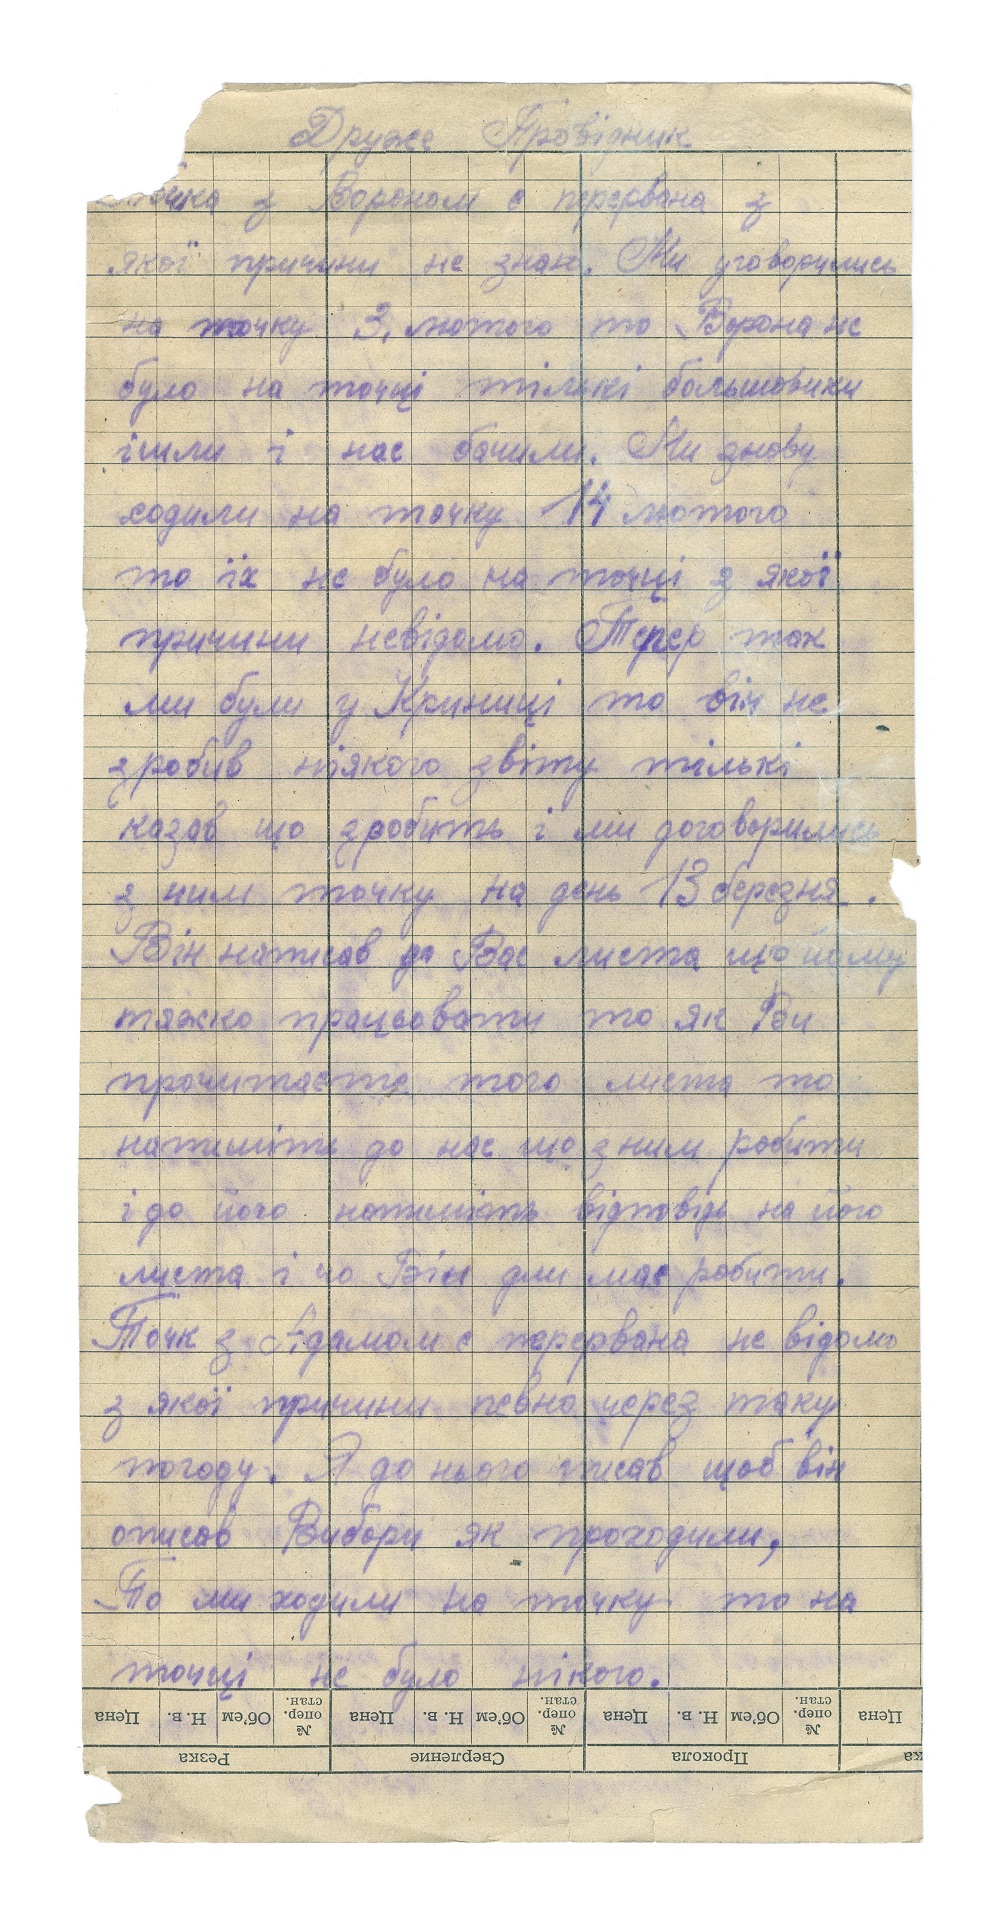 Друже Провідник
Точка з Вороном є перервана з
якої причини не знаю. Ми уговорились
на точку 3. лютого то Ворона не
було на точці тількі большовики
ішли і нас бачили. Ми знову
ходили на точку 14 лютого
то їх не було на точці з якої
причини невідомо. Тепер так
ми були у Криниці то він не
зробив ніякого звіту тількі
казав що зробить і ми договорились
з ним точку на день 13 березня.
Він написав до Вас листа що йому
тяжко працьовати то як Ви
прочитаєте того листа то
напишіть до нас що з ним робити
і до його напишіть відповідь на його
листа і чо Він дли має робити.
Точк з Адамом є перервана не відомо
з якої причини певно через таку
погоду. Я до нього писав щоб він
описав Вибори як проходили,
То ми ходили на точку то на
точці не було нікого.
Цена Н. в. Об'ем № опер. стан. Цена Н. в. Об'ем № опер. стан. Цена Н. в. Об'ем № опер. стан. Цена
Резка Сверление Прокола ка